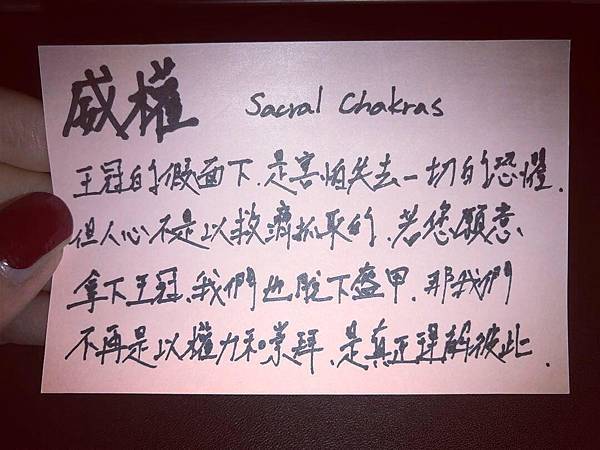 威權 Sacral Chakras
王冠的假面下.是害怕失去一切的恐懼.
但人心不是以救濟抓取的.若您願意.
拿下王冠.我們也脫下盔甲.那我們
不再是以權力和崇拜.是真正理解彼此.